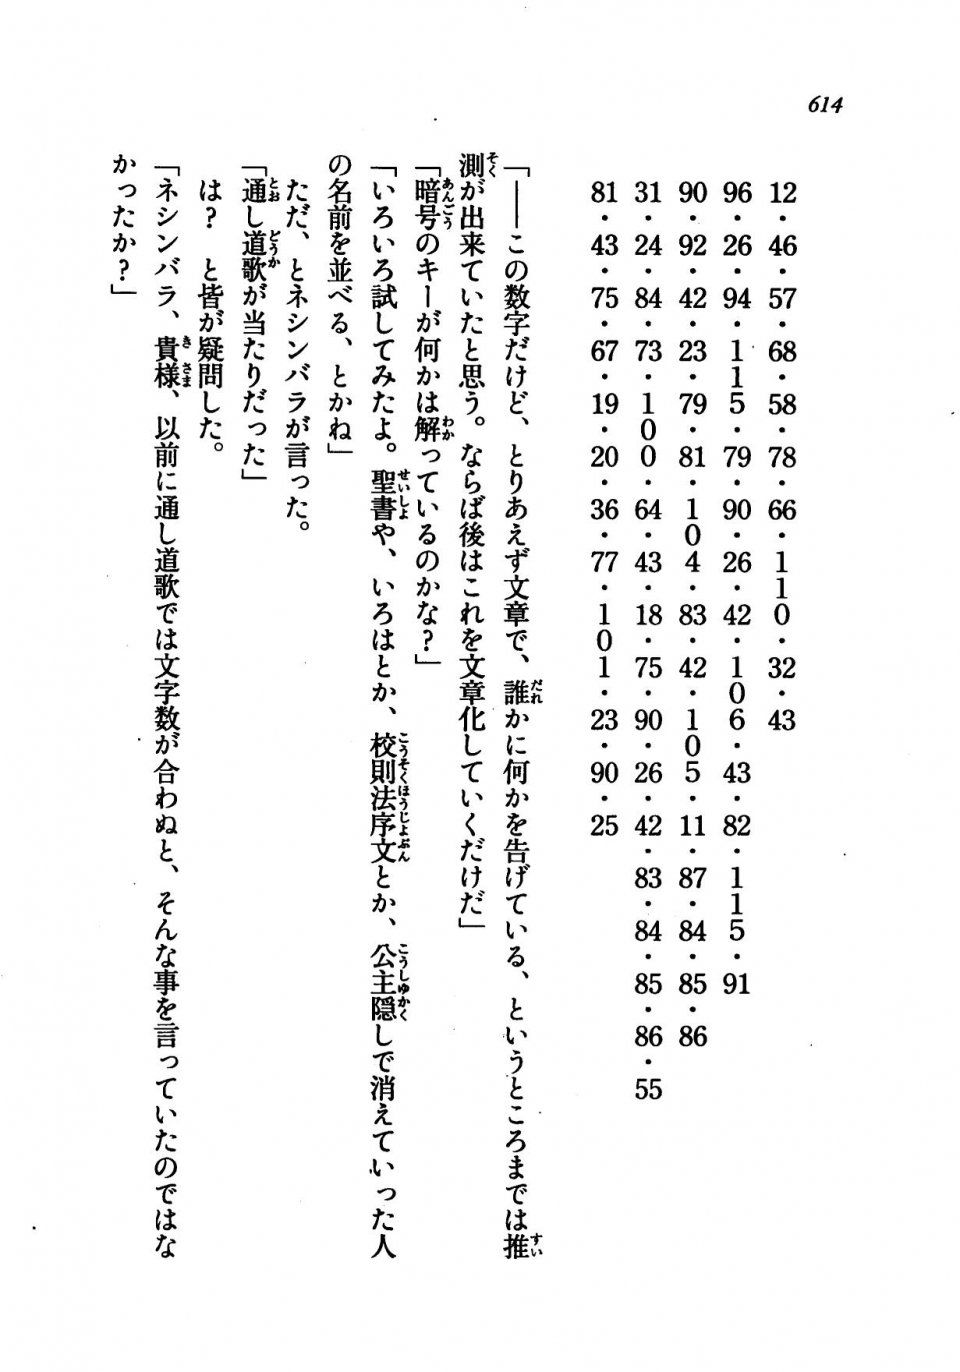 614
12・46・57・68・58・78・66・110・32・43
96・26・94・115・79・90・26・42・106・43・82・115・91
90・92・42・23・79・81・104・83・42・105・11・87・84・85・86
31・24・84・73・100・64・43・18・75・90・26・42・83・84・85・86・55
81・43・75・67・19・20・36・77・101・23・90・25
「――この数字だけど、とりあえず文章で、誰かに何かを告げている、というところまでは推
測が出来ていたと思う。ならば後はこれを文章化していくだけだ」
「暗号のキーが何かは解っているのかな？」
「いろいろ試してみたよ。聖書や、いろはとか、校則法序文とか、公主隠しで消えていった人
の名前を並べる、とかね」
ただ、とネシンバラが言った。
「通し道歌が当たりだった」
は？　と皆が疑問した。
「ネシンバラ、貴様、以前に通し道歌では文字数が合わぬと、そんな事を言っていたのではな
かったか？」